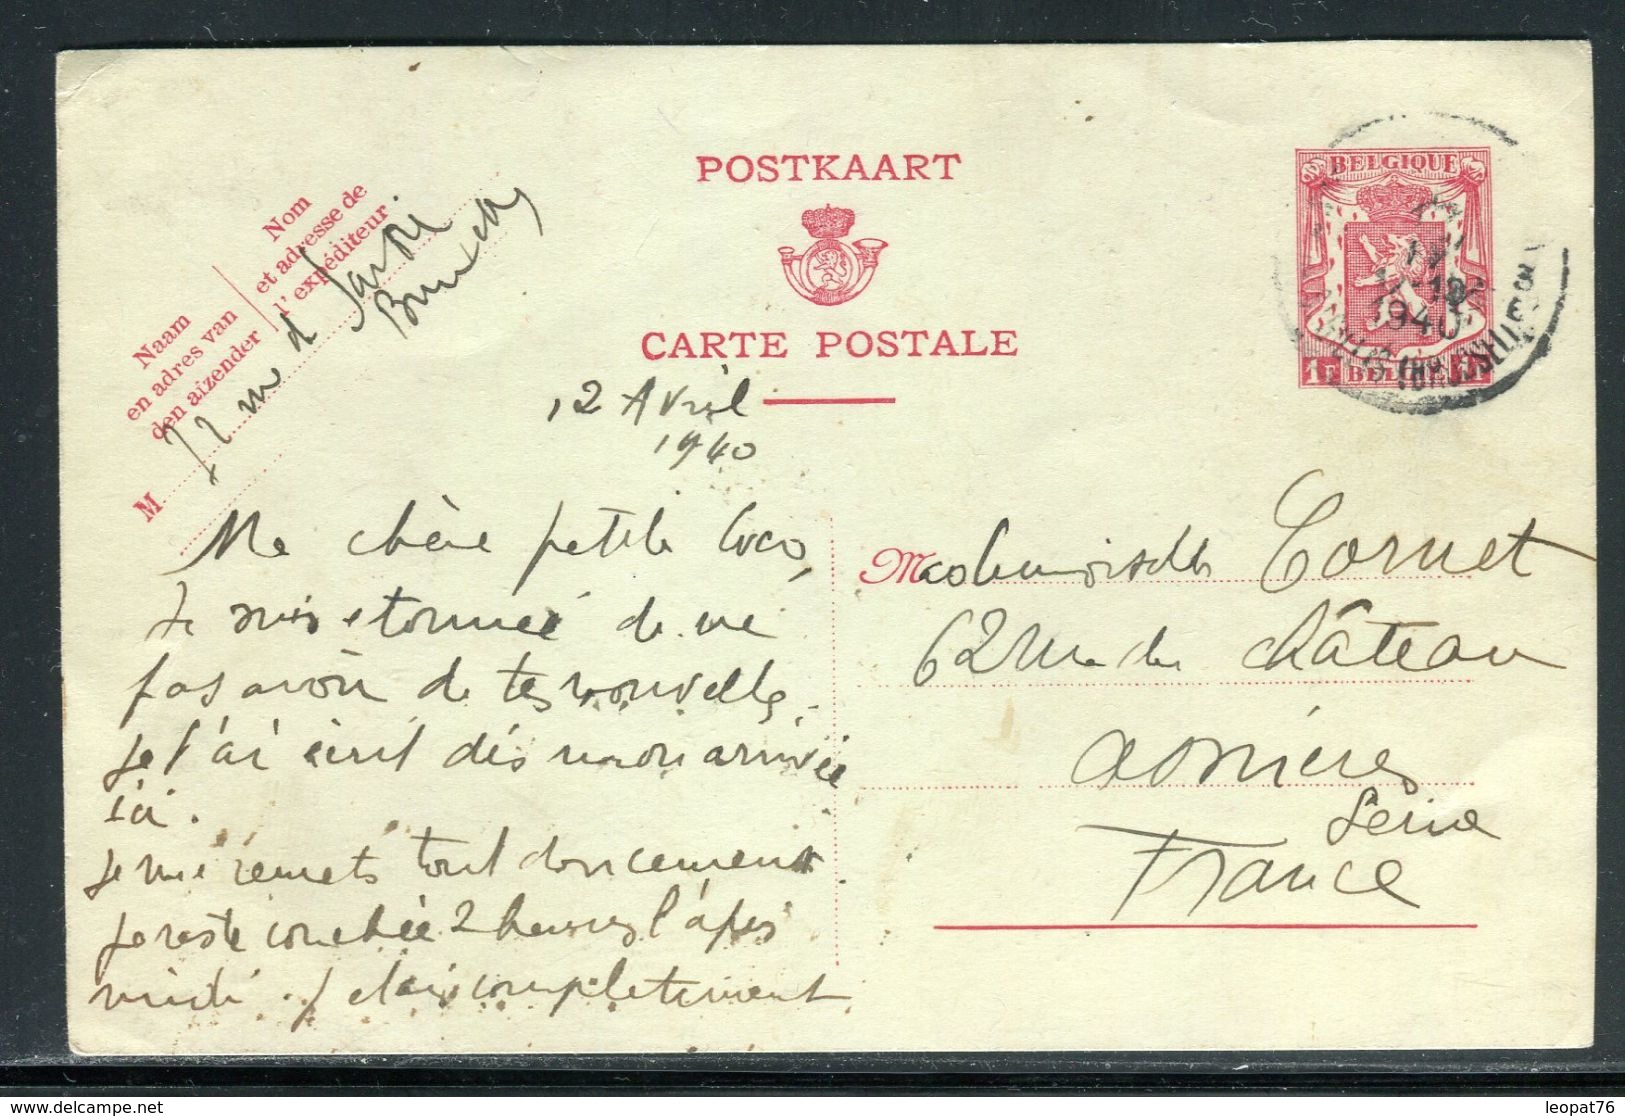 POSTKAART
CARTE POSTALE
BELGIQUE
1940
1F BELGIE 1F
Nom
et adresse de
l'expéditeur
Naam
en adres van
den afzender
M
12 Avril
1940
Ma chère petite Coco,
Je suis etonnée de ne
pas avoir de tes nouvelles,
je t'ai écrit dès mon arrivée
ici.
Je me remets tout doucement.
Je reste couchée 2 heures l'après
midi. J'étais complètement
Mademoiselle Cornet
62 Rue du Château
Asnières
Seine
France
leopat76